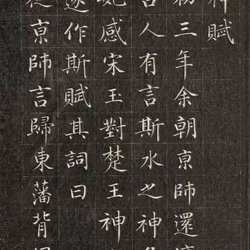 神賦
初三年余朝亰師還
古人有言斯水之神名
妃感宋王對楚王神
遂作斯賦其詞曰
從亰師言歸東藩背